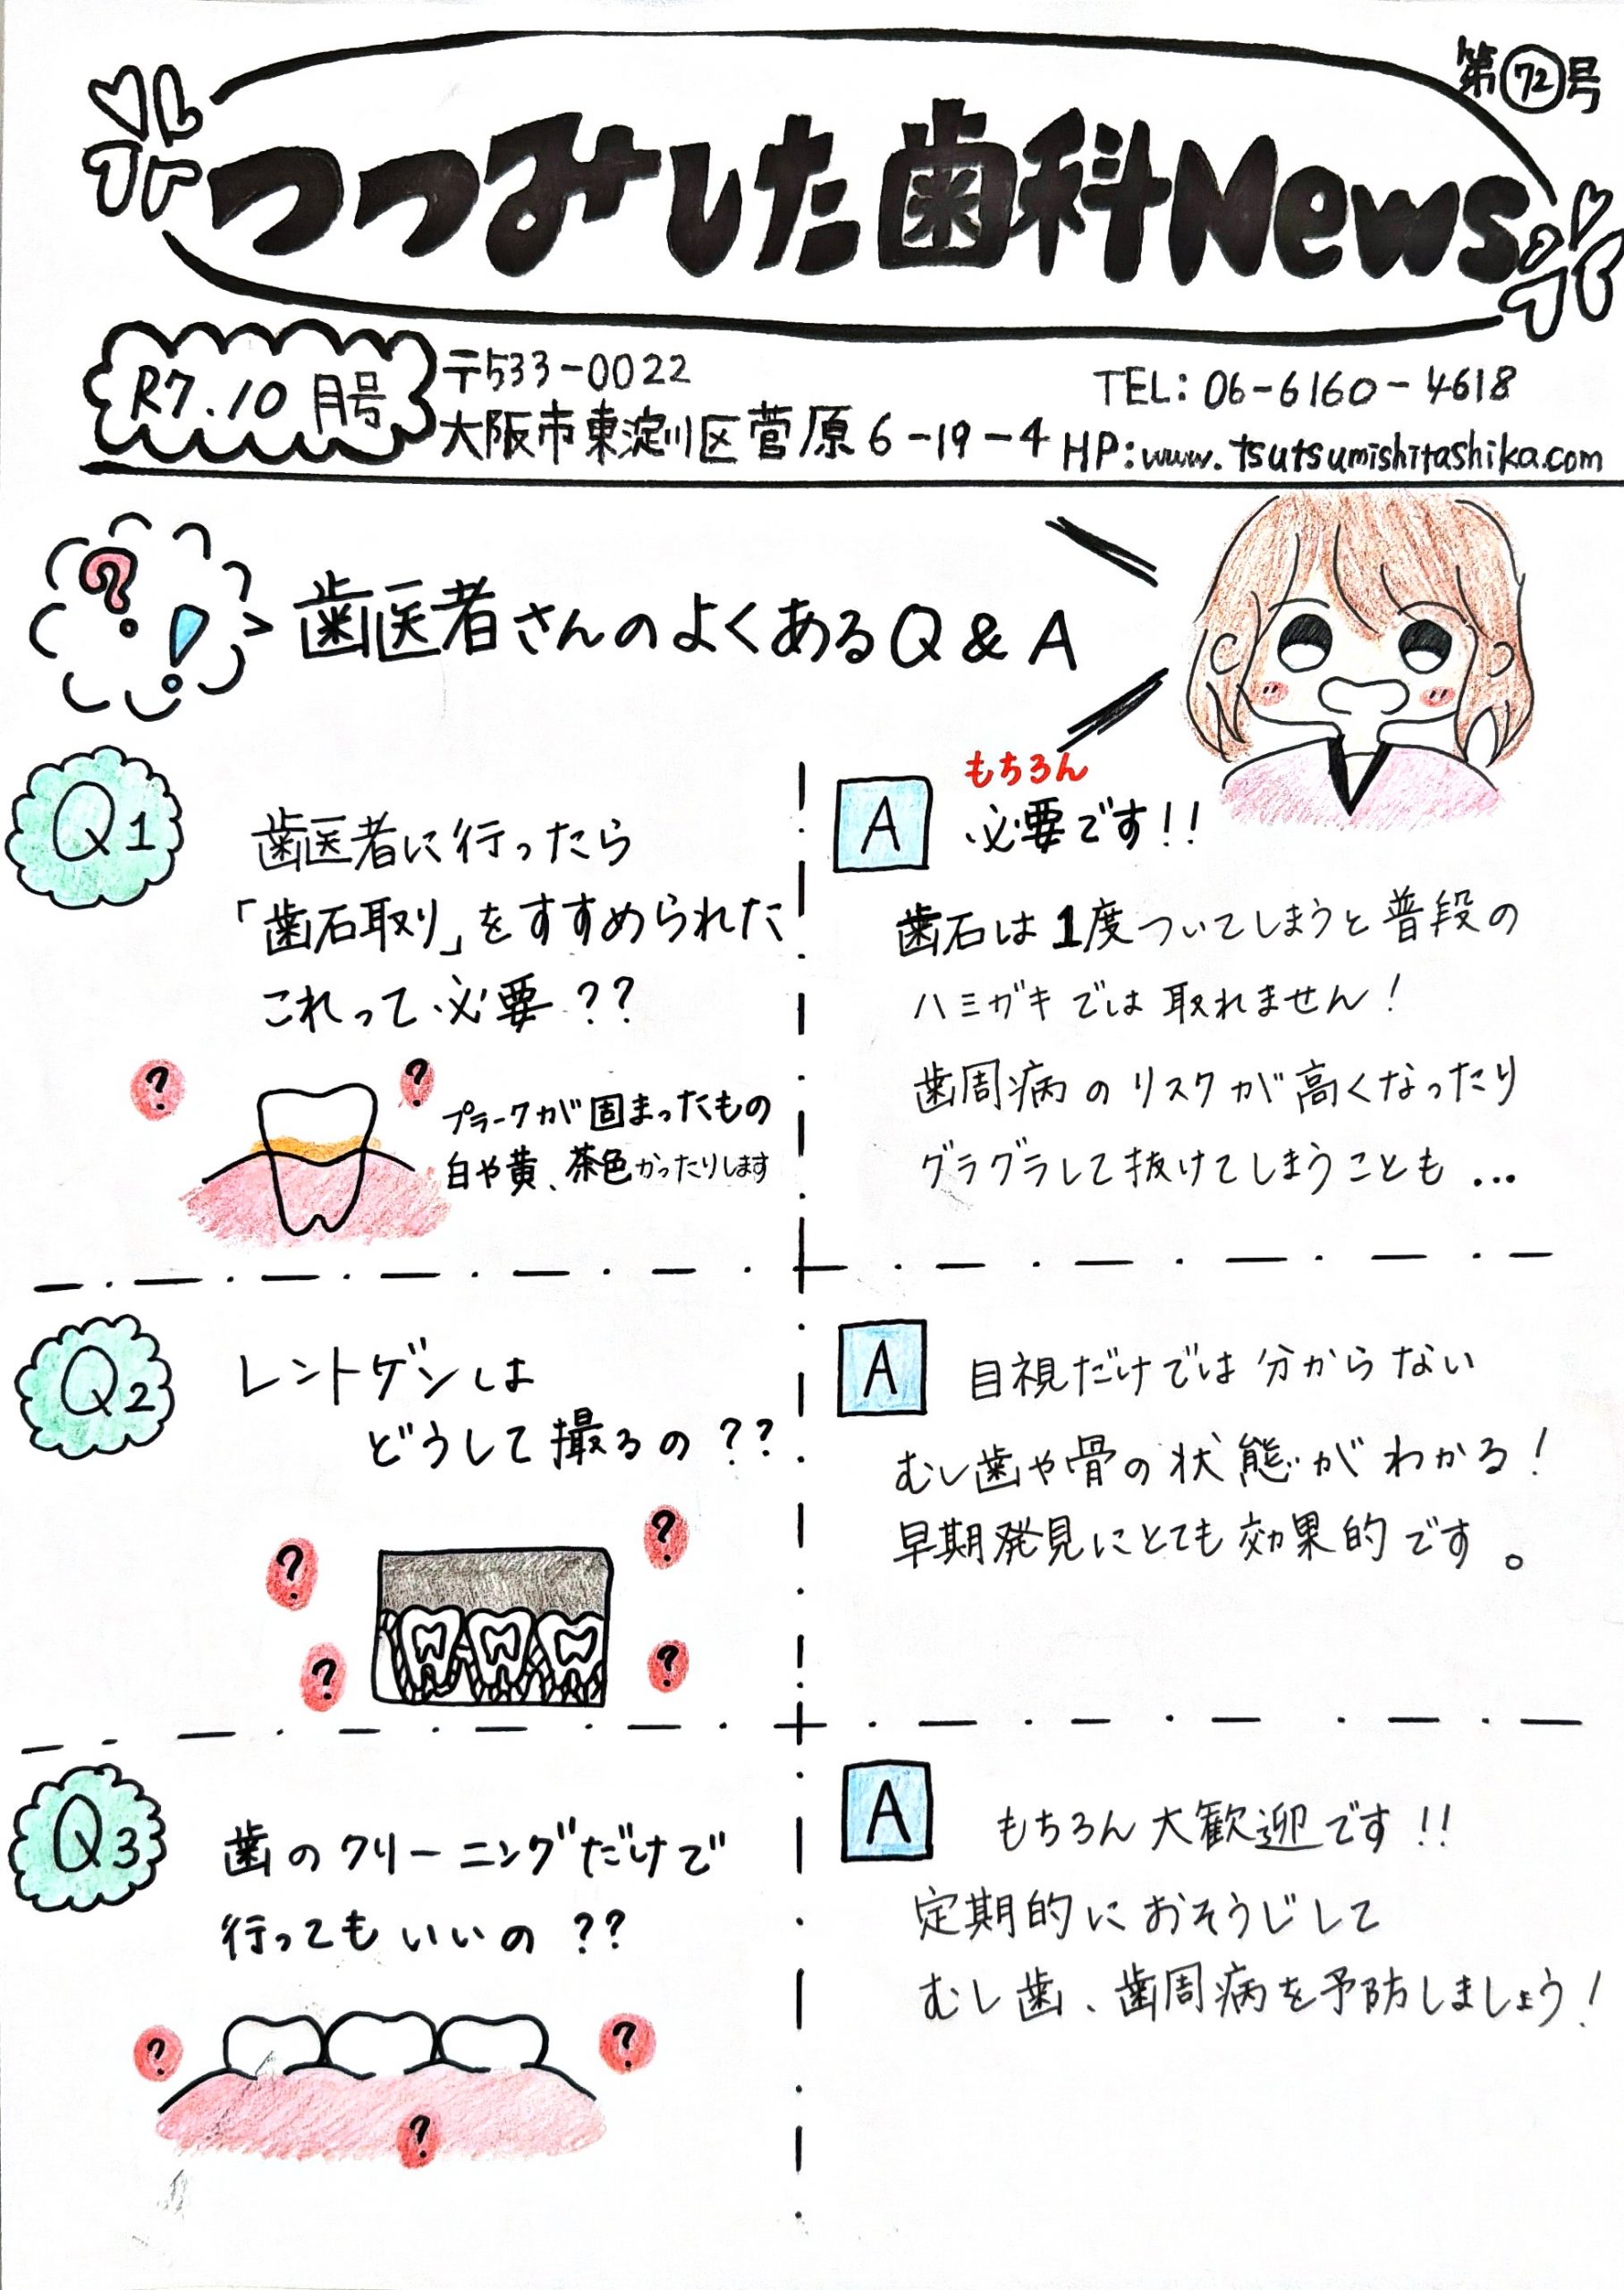 第72号
つつみした歯科News
R7.10月号
〒533-0022
大阪市東淀川区菅原6-19-4
TEL:06-6160-4618
HP:www.tsutsumishitashika.com
?!
歯医者さんのよくあるQ&A
Q1
歯医者に行ったら
「歯石取り」をすすめられた
これって必要??
? ?
プラークが固まったもの
白や黄、茶色かったりします
A
もちろん
必要です!!
歯石は1度ついてしまうと普段の
ハミガキでは取れません!
歯周病のリスクが高くなったり
グラグラして抜けてしまうことも...
Q2
レントゲンは
どうして撮るの??
? ?
? ?
A
目視だけでは分からない
むし歯や骨の状態がわかる!
早期発見にとても効果的です。
Q3
歯のクリーニングだけで
行ってもいいの??
? ?
?
A
もちろん大歓迎です!!
定期的におそうじして
むし歯、歯周病を予防しましょう!